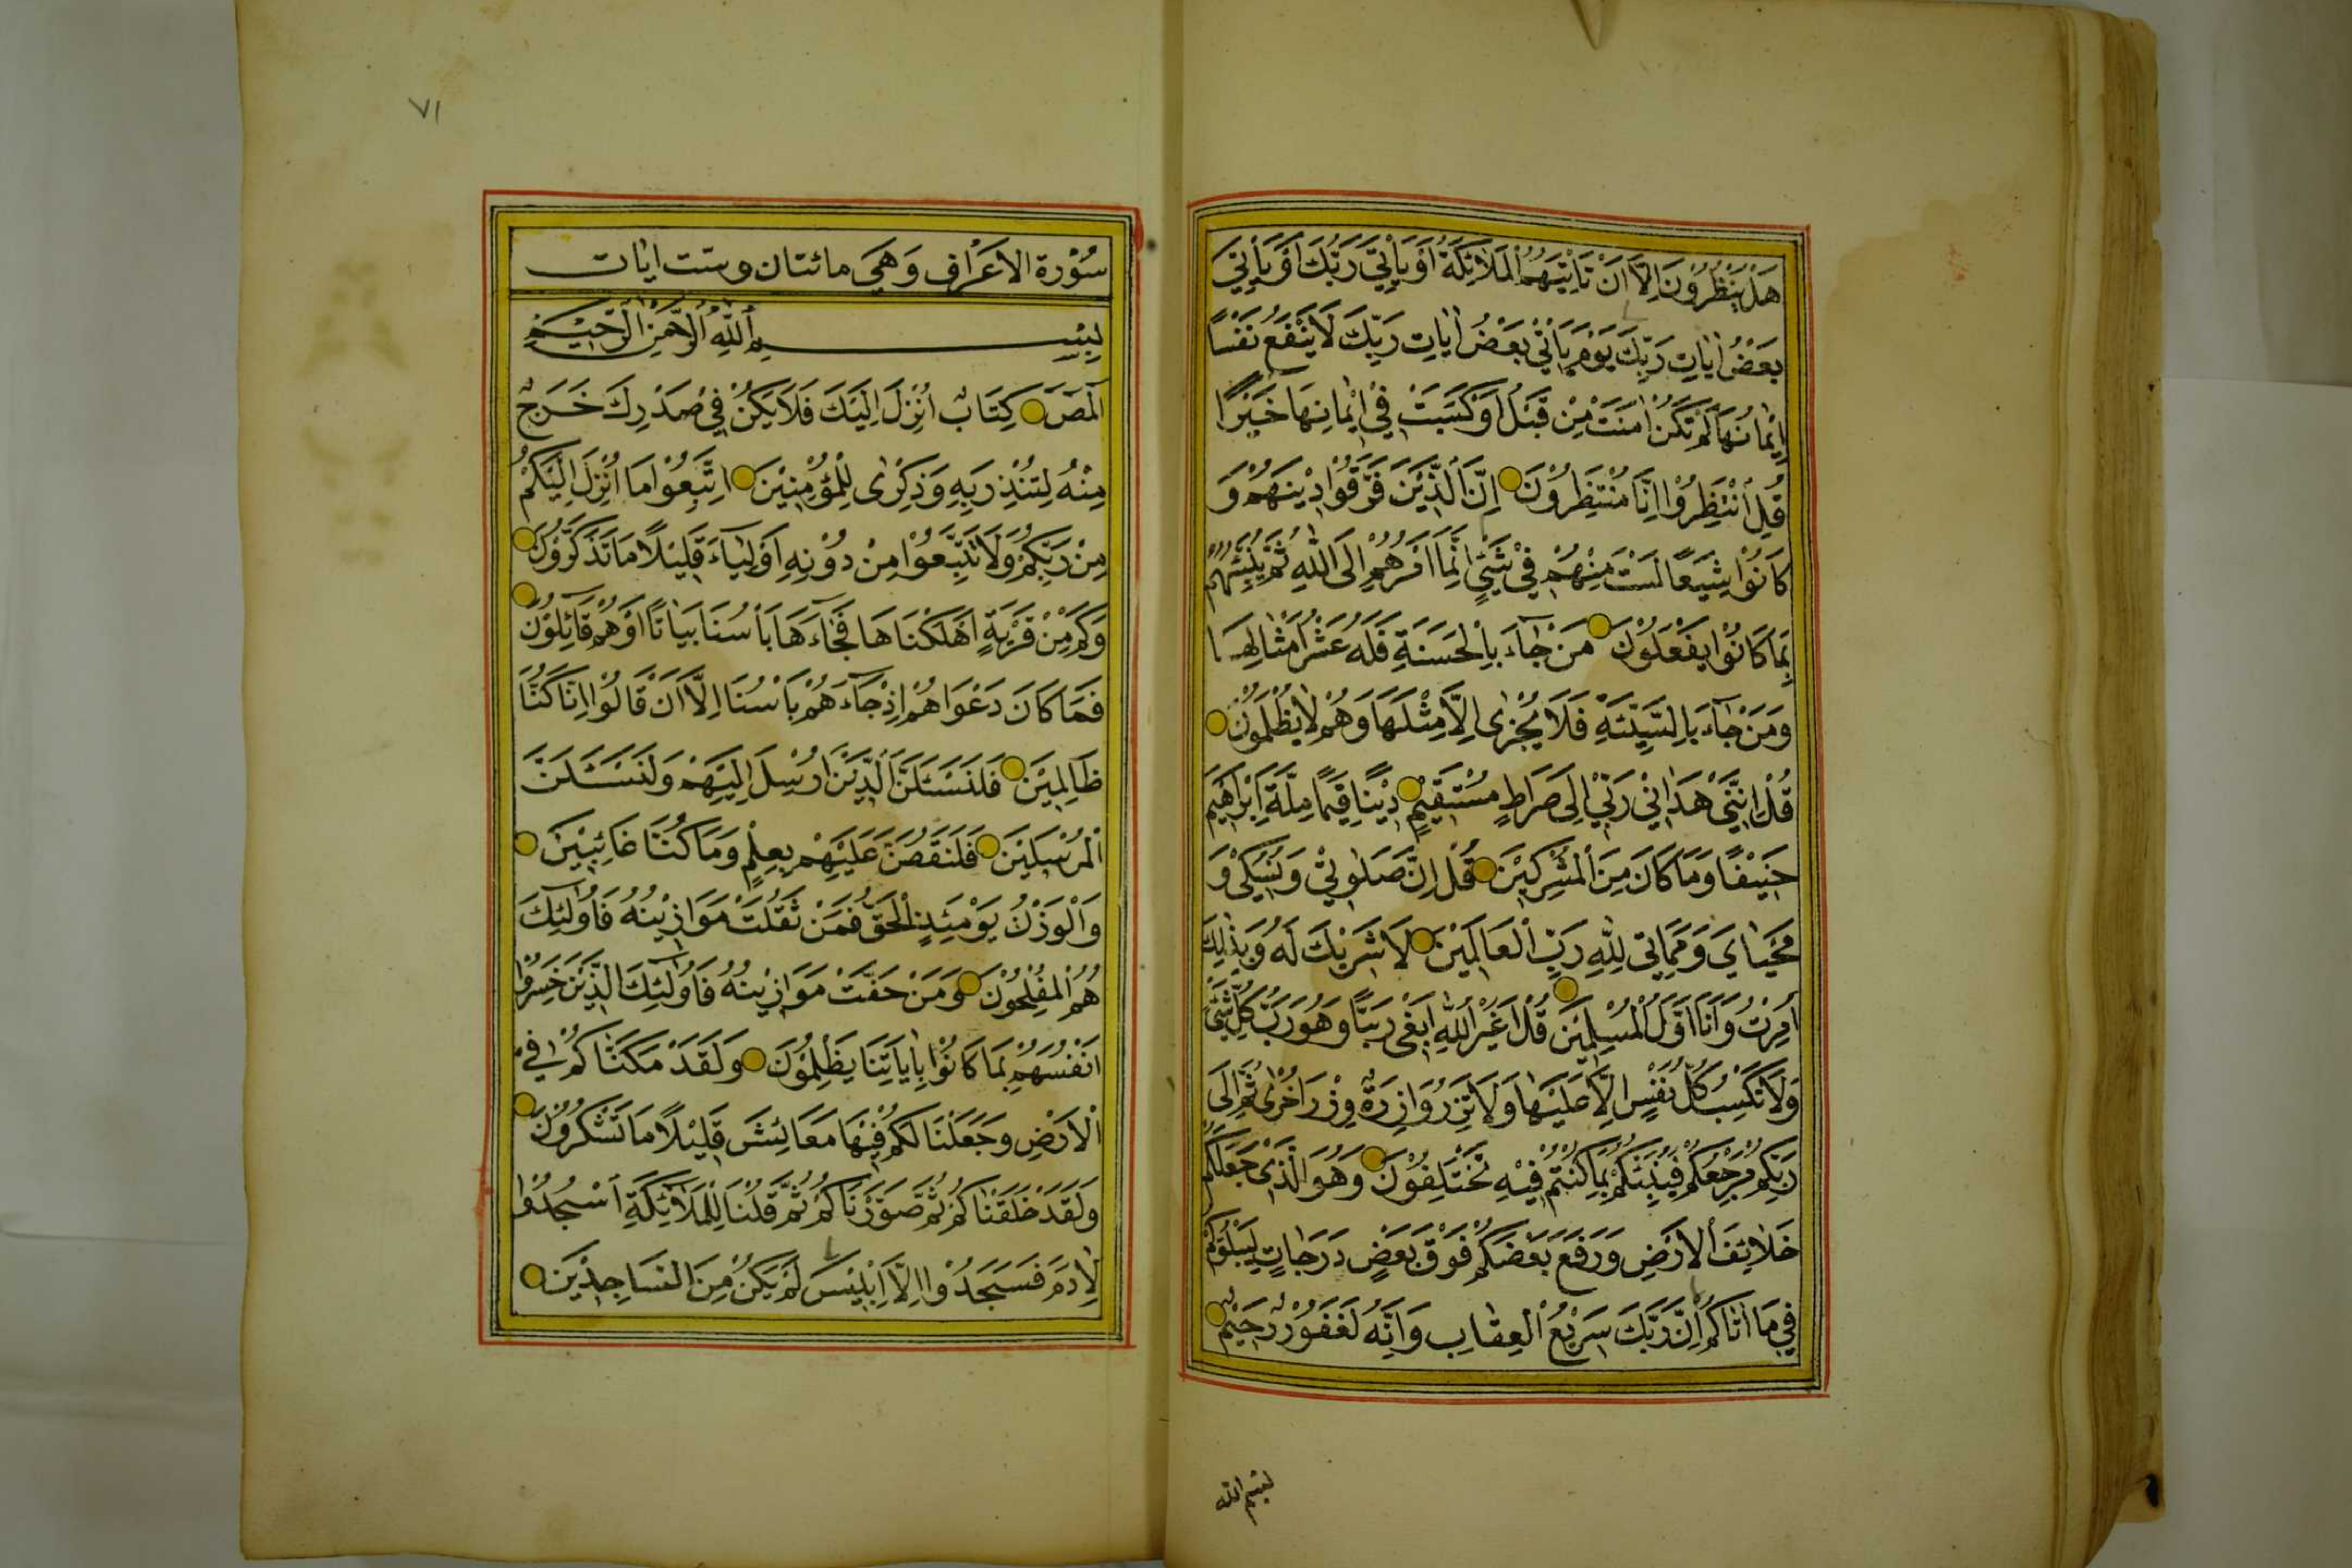 هَلْ يَنْظُرُونَ اِلَّا اَنْ تَاْتِيَهُمُ الْمَلَائِكَةُ اَوْ يَاْتِيَ رَبُّكَ اَوْ يَاْتِيَ
بَعْضُ اٰيَاتِ رَبِّكَ يَوْمَ يَاْتِي بَعْضُ اٰيَاتِ رَبِّكَ لَا يَنْفَعُ نَفْسًا
اِيْمَانُهَا لَمْ تَكُنْ اٰمَنَتْ مِنْ قَبْلُ اَوْ كَسَبَتْ فِيْ اِيْمَانِهَا خَيْرًا
قُلِ انْتَظِرُوْا اِنَّا مُنْتَظِرُوْنَ اِنَّ الَّذِيْنَ فَرَّقُوْا دِيْنَهُمْ وَ
كَانُوْا شِيَعًا لَسْتَ مِنْهُمْ فِيْ شَيْءٍ اِنَّمَا اَمْرُهُمْ اِلَى اللّٰهِ ثُمَّ يُنَبِّئُهُمْ
بِمَا كَانُوْا يَفْعَلُوْنَ مَنْ جَاۤءَ بِالْحَسَنَةِ فَلَهُ عَشْرُ اَمْثَالِهَا
وَمَنْ جَاۤءَ بِالسَّيِّئَةِ فَلَا يُجْزٰى اِلَّا مِثْلَهَا وَهُمْ لَا يُظْلَمُوْنَ
قُلْ اِنَّنِيْ هَدَانِيْ رَبِّيْ اِلٰى صِرَاطٍ مُسْتَقِيْمٍ دِيْنًا قِيَمًا مِلَّةَ اِبْرٰاهِيْمَ
حَنِيْفًا وَمَا كَانَ مِنَ الْمُشْرِكِيْنَ قُلْ اِنَّ صَلٰوتِيْ وَنُسُكِيْ وَ
مَحْيَايَ وَمَمَاتِيْ لِلّٰهِ رَبِّ الْعَالَمِيْنَ لَا شَرِيْكَ لَهُ وَبِذٰلِكَ
اُمِرْتُ وَاَنَا اَوَّلُ الْمُسْلِمِيْنَ قُلْ اَغَيْرَ اللّٰهِ اَبْغِيْ رَبًّا وَهُوَ رَبُّ كُلِّ شَيْءٍ
وَلَا تَكْسِبُ كُلُّ نَفْسٍ اِلَّا عَلَيْهَا وَلَا تَزِرُ وَازِرَةٌ وِزْرَ اُخْرٰى ثُمَّ اِلٰى
رَبِّكُمْ مَرْجِعُكُمْ فَيُنَبِّئُكُمْ بِمَا كُنْتُمْ فِيْهِ تَخْتَلِفُوْنَ وَهُوَ الَّذِيْ جَعَلَكُمْ
خَلَائِفَ الْاَرْضِ وَرَفَعَ بَعْضَكُمْ فَوْقَ بَعْضٍ دَرَجَاتٍ لِيَبْلُوَكُمْ
فِيْ مَا اٰتَاكُمْ اِنَّ رَبَّكَ سَرِيْعُ الْعِقَابِ وَاِنَّهُ لَغَفُوْرٌ رَحِيْمٌ
بسم الله
٧١
سُوْرَة الْاَعْرَاف وَهِيَ مائتان وست ايات
بِسْمِ اللّٰهِ الرَّحْمٰنِ الرَّحِيْمِ
الٓمٓصٓ كِتَابٌ اُنْزِلَ اِلَيْكَ فَلَا يَكُنْ فِيْ صَدْرِكَ حَرَجٌ
مِنْهُ لِتُنْذِرَ بِهِ وَذِكْرٰى لِلْمُؤْمِنِيْنَ اِتَّبِعُوْا مَا اُنْزِلَ اِلَيْكُمْ
مِنْ رَبِّكُمْ وَلَا تَتَّبِعُوْا مِنْ دُوْنِهِ اَوْلِيَاۤءَ قَلِيْلًا مَا تَذَكَّرُوْنَ
وَكَمْ مِنْ قَرْيَةٍ اَهْلَكْنَاهَا فَجَاۤءَهَا بَاْسُنَا بَيَاتًا اَوْ هُمْ قَائِلُوْنَ
فَمَا كَانَ دَعْوَاهُمْ اِذْ جَاۤءَهُمْ بَاْسُنَا اِلَّا اَنْ قَالُوْا اِنَّا كُنَّا
ظَالِمِيْنَ فَلَنَسْئَلَنَّ الَّذِيْنَ اُرْسِلَ اِلَيْهِمْ وَلَنَسْئَلَنَّ
الْمُرْسَلِيْنَ فَلَنَقُصَّنَّ عَلَيْهِمْ بِعِلْمٍ وَمَا كُنَّا غَائِبِيْنَ
وَالْوَزْنُ يَوْمَئِذٍ الْحَقُّ فَمَنْ ثَقُلَتْ مَوَازِيْنُهُ فَاُولٰئِكَ
هُمُ الْمُفْلِحُوْنَ وَمَنْ خَفَّتْ مَوَازِيْنُهُ فَاُولٰئِكَ الَّذِيْنَ خَسِرُوْا
اَنْفُسَهُمْ بِمَا كَانُوْا بِاٰيَاتِنَا يَظْلِمُوْنَ وَلَقَدْ مَكَّنَّاكُمْ فِي
الْاَرْضِ وَجَعَلْنَا لَكُمْ فِيْهَا مَعَائِشَ قَلِيْلًا مَا تَشْكُرُوْنَ
وَلَقَدْ خَلَقْنَاكُمْ ثُمَّ صَوَّرْنَاكُمْ ثُمَّ قُلْنَا لِلْمَلَائِكَةِ اسْجُدُوْا
لِاٰدَمَ فَسَجَدُوْا اِلَّا اِبْلِيْسَ لَمْ يَكُنْ مِنَ السَّاجِدِيْنَ